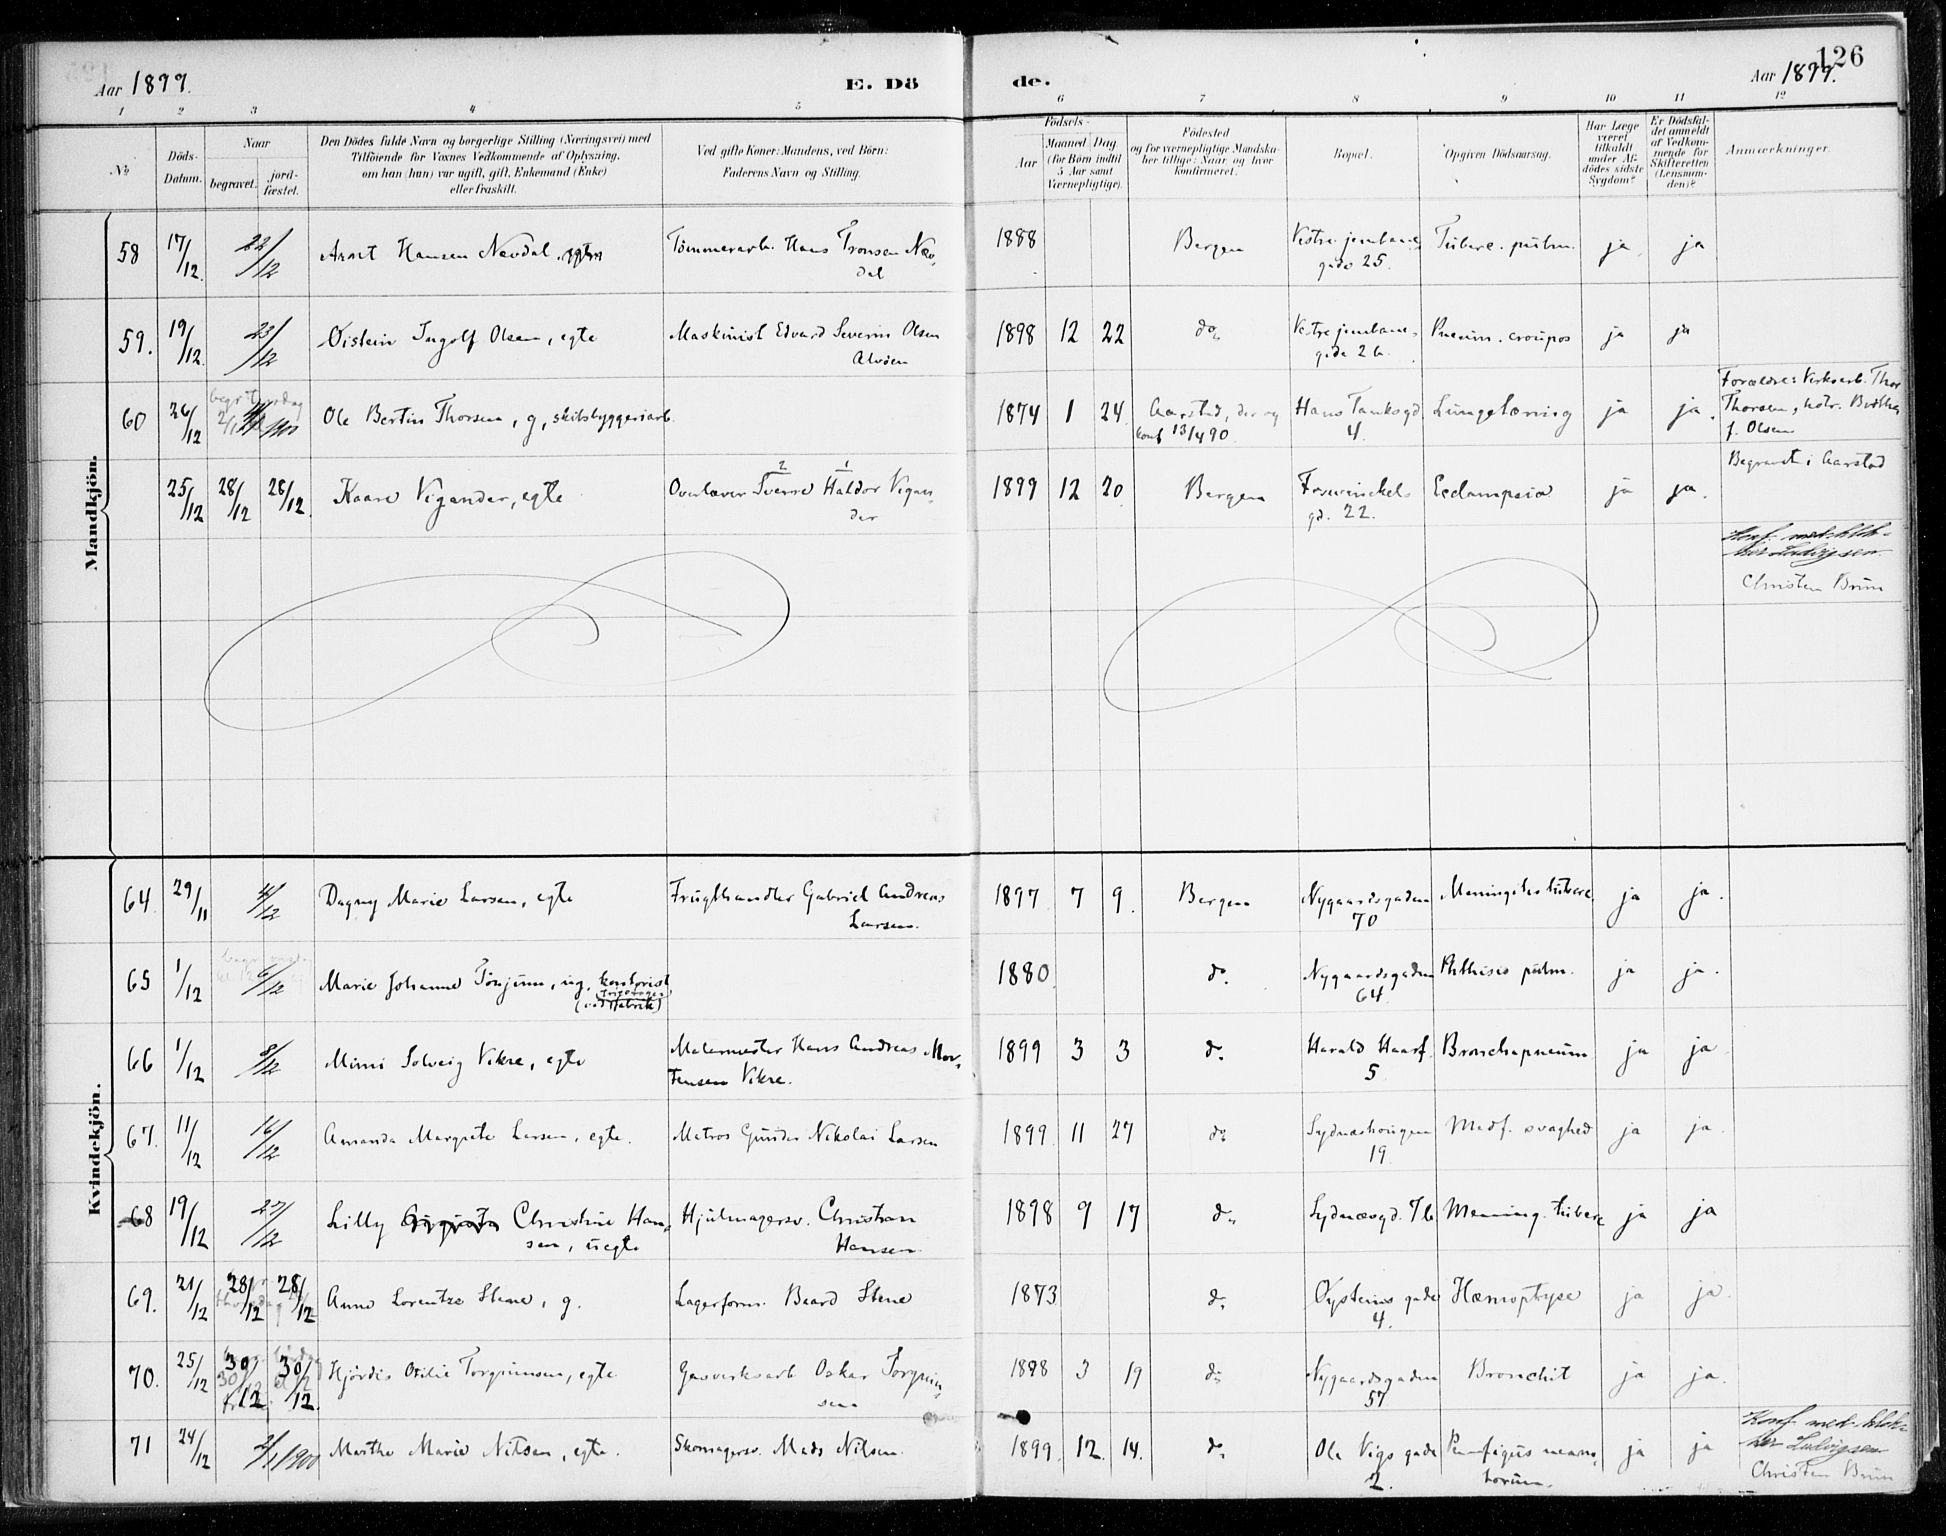 Aar 1899.
E. Dö
de.
126
Aar 1899.
1 2 3 4 5 6 7 8 9 10 11 12
№
Döds-
Datum.
Naar
begravet.
jord-
fæstet.
Den Dödes fulde Navn og borgerlige Stilling (Næringsvei) med
Tilföiende for Voxnes Vedkommende af Oplysning,
om han (hun) var ugift, gift, Enkemand (Enke)
eller fraskilt.
Ved gifte Koner: Mandens, ved Börn:
Faderens Navn og Stilling.
Födsels-
Aar
Maaned Dag
(for Börn indtil
5 Aar samt
Værnepligtige).
Födested
og for værnepligtige Mandska-
ber tillige: Naar og hvor
konfirmeret.
Bopæl.
Opgiven Dödsaarsag.
Har Læge
været
tilkaldt
under Af-
dödes sidste
Sygdom?
Er Dödsfal-
det anmeldt
af Vedkom-
mende for
Skifteretten
(Lensman-
den)?
Anmærkninger.
Mandkjön.
58 17/12 22/12 Arnt Hansen Nævdal, egte Tömmerarb. Hans Tronsen Næv-
dal
1888 Bergen Vestre jernbane-
gade 25. Tuberc. pulm. ja ja
59. 19/12 23/12 Øistein Ingolf Olsen, egte Maskinist Edvard Severin Olsen
Alvöen
1898 12 22 do Vestre jernbane-
gade 26. Pneum. croupos ja ja
60 26/12 Ole Bertin Thorsen, g, skibsbyggeriarb.
1874 1 24 Aarstad, der og
konf 13/4 90. Hans Tanksgd
4. Lungetæring ja ja.
Forældre: Verksarb. Thor
Thorsen, hstr. Berthe
f. Olsen
Begravet i Aarstad
25/12 28/12 28/12. Kaare Vigander, egte Overlærer Sverre Haldor Vigan-
2 1
der
1899 12 20 Bergen Fosswinckels
gd. 22. Eclampsia ja ja.
Konf. med klok-
ker Ludvigsen.
Christen Brun
Kvindekjön.
64. 29/11 4/12 Dagny Marie Larsen, egte Frugthandler Gabriel Andreas
Larsen.
1897 7 9. Bergen Nygaardsgaden
70 Meningitis tuberc. ja ja.
65 1/12 6/12 Marie Johanne Tönjum, ug, kontorist
1880. do. Nygaardsgaden
64. Phthisis pulm. ja ja.
66 1/12 8/12 Mimi Solveig Vikre, egte Malermester Hans Andreas Mor-
tensen Vikre.
1899 3 3 do. Harald Haarf.
5 Bronchopneum ja ja
67. 11/12 16/12 Amanda Margrete Larsen, egte. Matros Gunder Nikolai Larsen
1899. 11 27 do Sydneshougen
19. Medf. svaghed ja ja.
68 19/12 27/12 Lilly Christine Han-
sen, uegte Hjulmagersv. Christian
Hansen.
1898 9 17 do Sydnæsgd. 7b Mening. tuberc ja ja
69. 21/12 28/12 28/12 Anne Lorentze Stene, g. Lagerform. Baard Stene
1873. do. Øysteins gade
4. Hæmoptyse ja ja.
70. 25/12 30/12 30/12. Hjördis Otilie Torgrimsen, egte Gasverksarb Oskar Torgrim-
sen
1898 3 19 do Nygaardsgaden
57 Bronchit ja ja.
71 24/12 2/1 1900 Marthe Marie Nilsen, egte. Skomagersv. Mads Nilsen.
1899. 12. 14. do. Ole Vigs gade
2. Pemfigus neona-
torum. ja ja
Konf. med klok-
ker Ludvigsen
Christen Brun